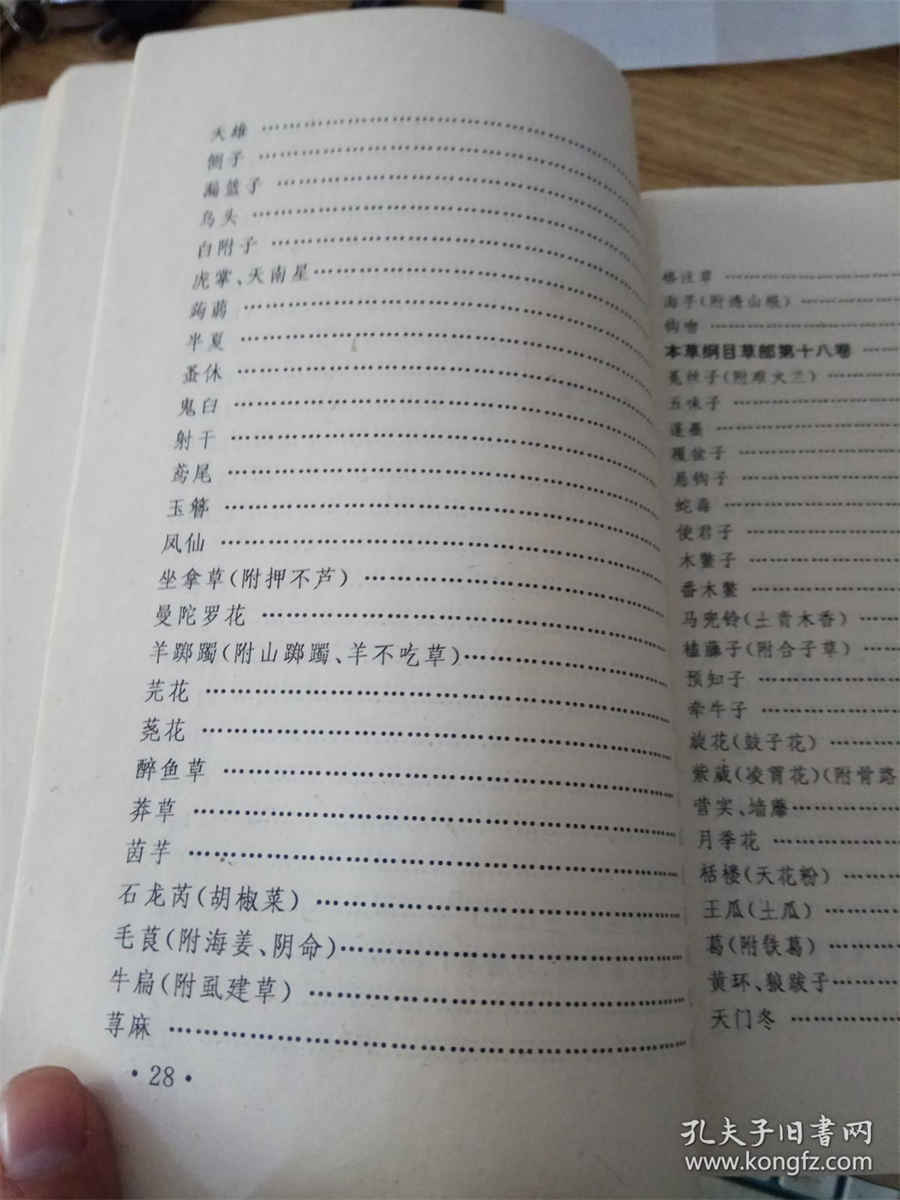 天雄
侧子
漏篮子
乌头
白附子
虎掌、天南星
蒟蒻
半夏
蚤休
鬼臼
射干
鸢尾
玉簪
凤仙
坐拿草(附押不芦)
曼陀罗花
羊踯躅(附山踯躅、羊不吃草)
芫花
荛花
醉鱼草
莽草
茵芋
石龙芮(胡椒菜)
毛茛(附海姜、阴命)
牛扁(附虱建草)
荨麻
·28·
格注草
海芋(附透山根)
钩吻
本草纲目草部第十八卷
菟丝子(附难火兰)
五味子
蓬蘽
覆盆子
悬钩子
蛇莓
使君子
木鳖子
番木鳖
马兜铃(土青木香)
榼藤子(附合子草)
预知子
牵牛子
旋花(鼓子花)
紫葳(凌霄花)(附骨路
营实、墙蘼
月季花
栝楼(天花粉)
王瓜(土瓜)
葛(附铁葛)
黄环、狼跋子
天门冬
孔夫子旧书网
www.kongfz.com